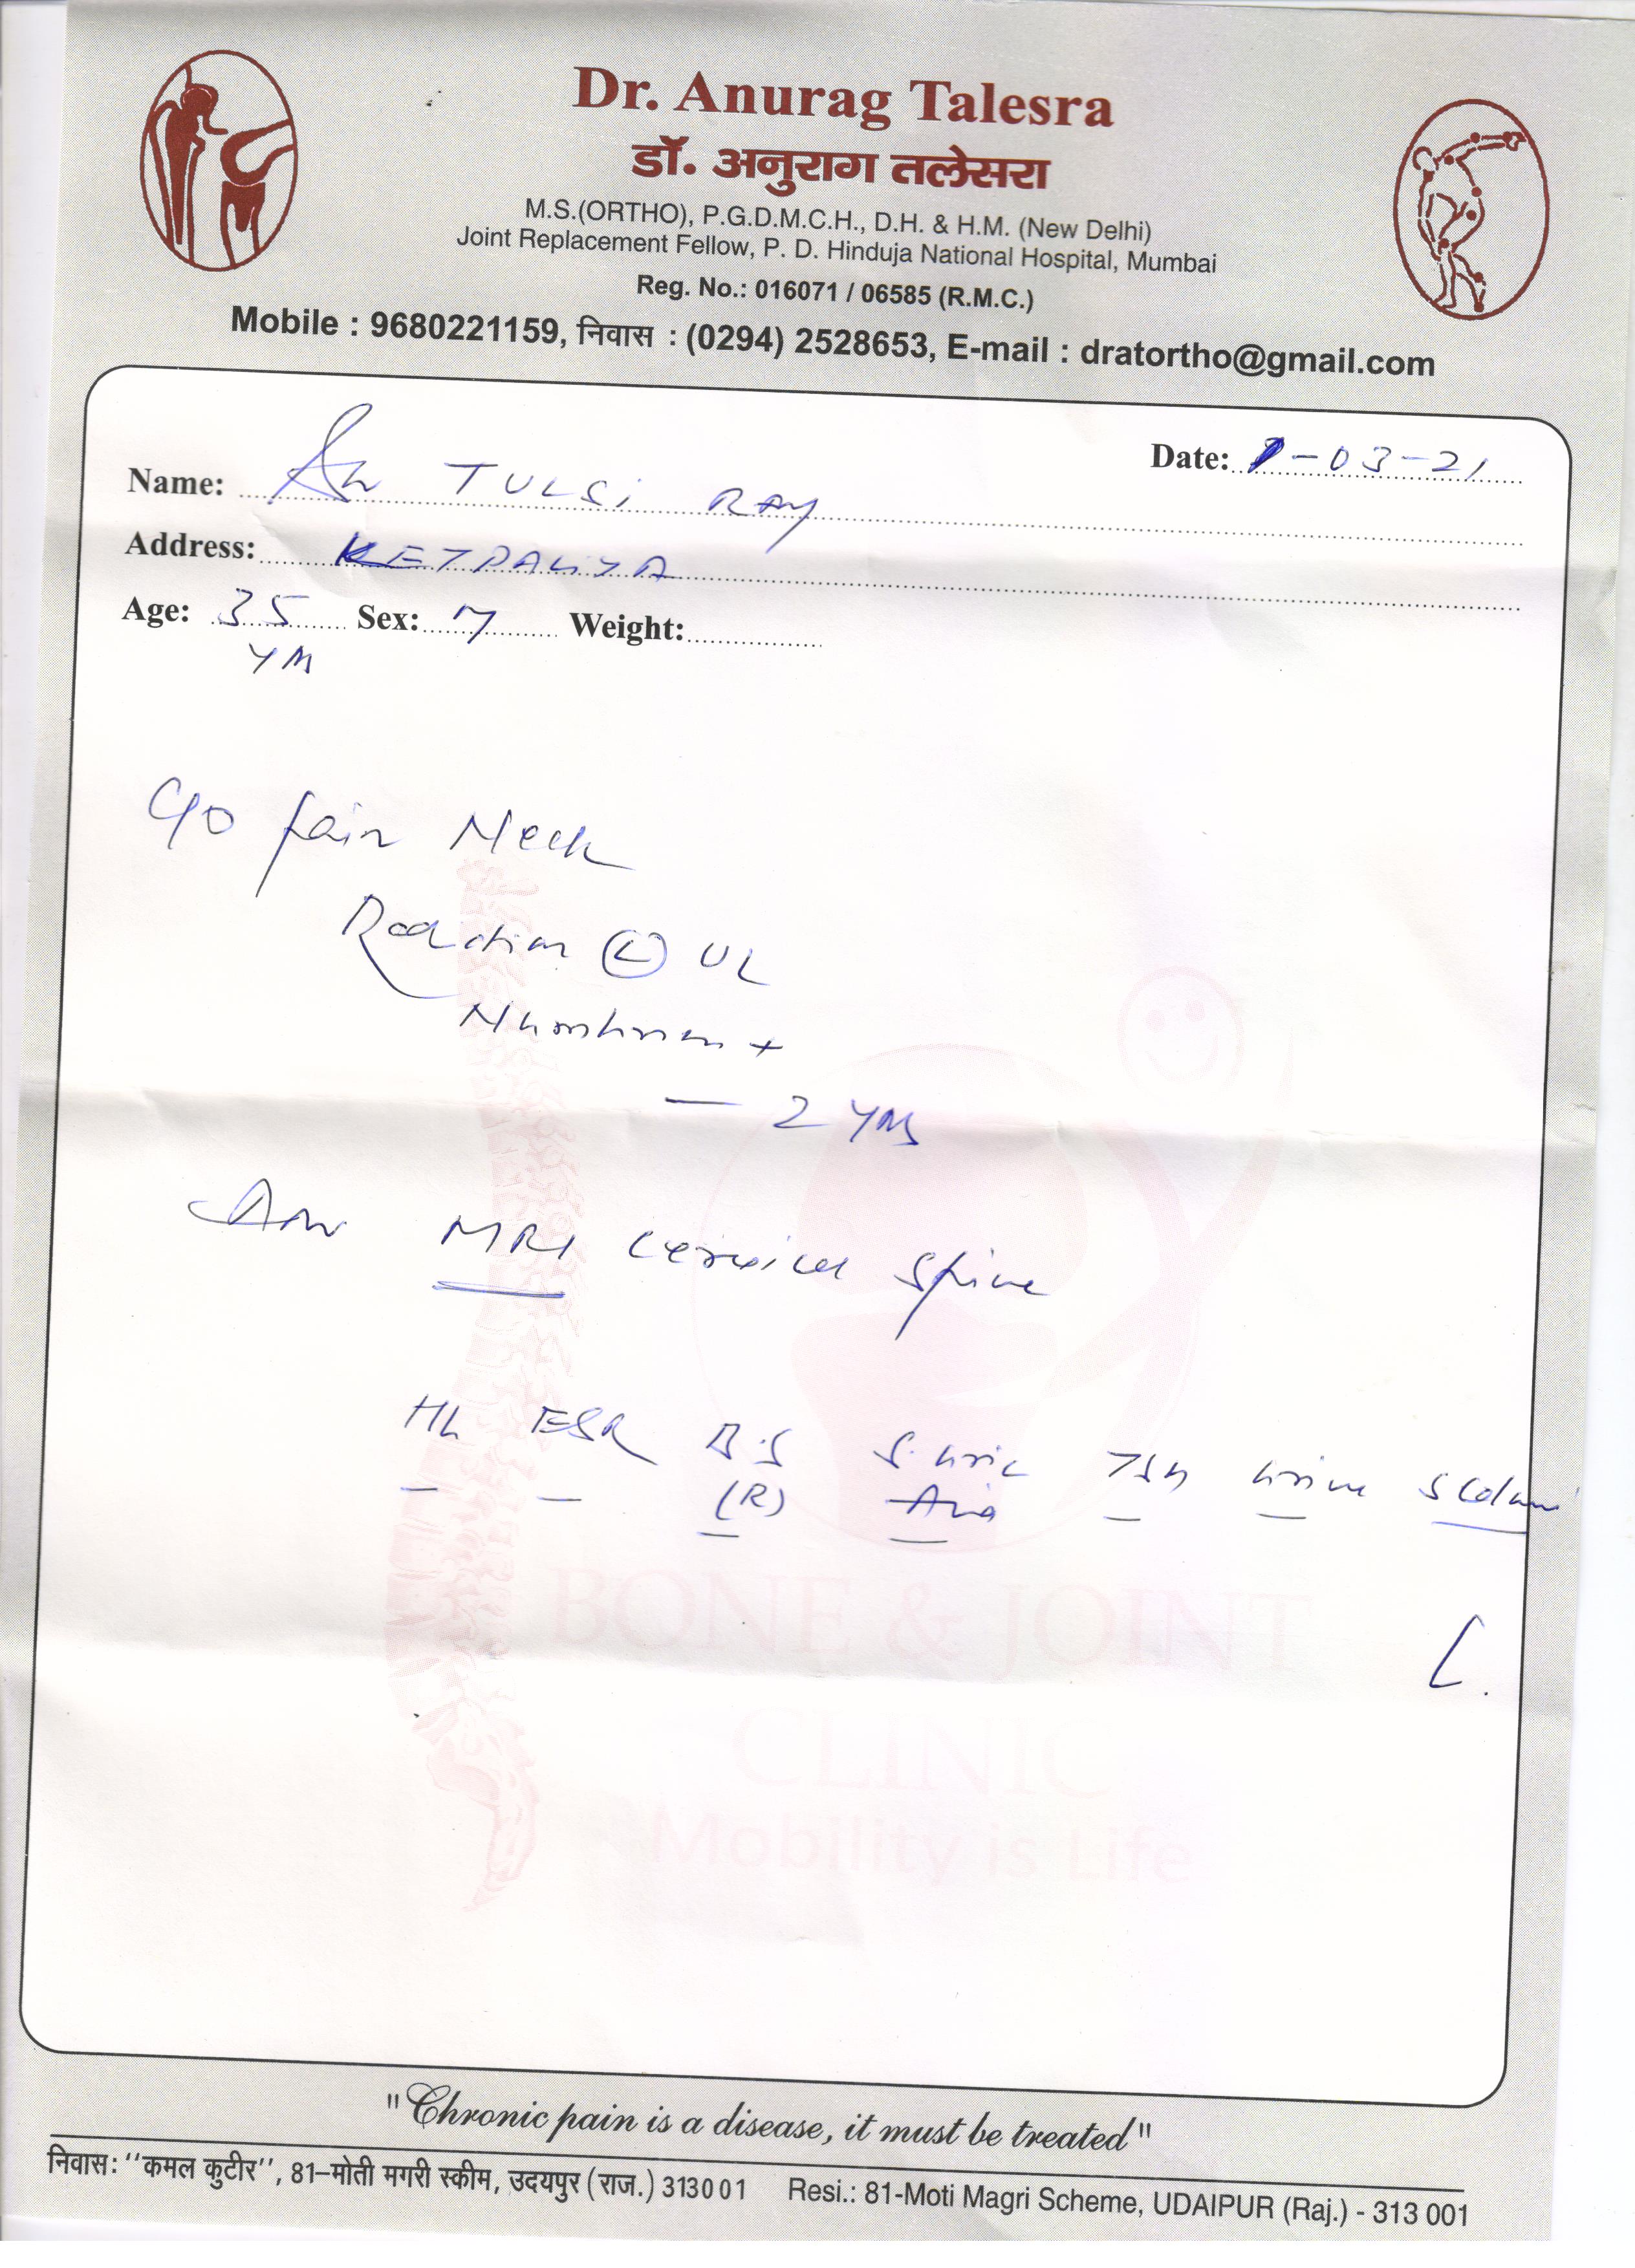 Dr. Anurag Talesra
डॉ. अनुराग तलेसरा
M.S.(ORTHO), P.G.D.M.C.H., D.H. & H.M. (New Delhi)
Joint Replacement Fellow, P. D. Hinduja National Hospital, Mumbai
Reg. No.: 016071 / 06585 (R.M.C.)
Mobile : 9680221159, निवास : (0294) 2528653, E-mail : dratortho@gmail.com
Date: -03-21
Name: TULSI RAY
Address:
Age: 35 Sex: M Weight:
YRS
C/O Pain Neck
Radiation (L) UL
Numbness +
— 2 YRS
Adv MRI Cervical Spine
Hb ESR B.S S. Uric TSH Urine
(R) Acid
BONE & JOINT
CLINIC
Mobility is Life
"Chronic pain is a disease, it must be treated"
निवास: ''कमल कुटीर'', 81-मोती मगरी स्कीम, उदयपुर (राज.) 313001 Resi.: 81-Moti Magri Scheme, UDAIPUR (Raj.) - 313 001